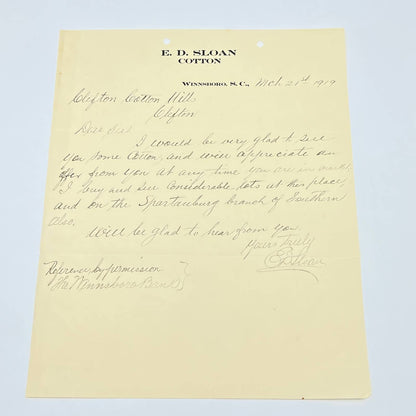 E. D. SLOAN
COTTON
WINNSBORO, S. C., Mch 21st 1919
Clifton Cotton Mill
Clifton
Dear Sir
I would be very glad to sell
you some Cotton, and will appreciate an
offer from you at any time you are in market
I buy and sell Considerable lots at this place,
and on the Spartanburg branch of Southern
also.
Will be glad to hear from you.
Yours truly
E D Sloan
Reference by permission
The Winnsboro Bank